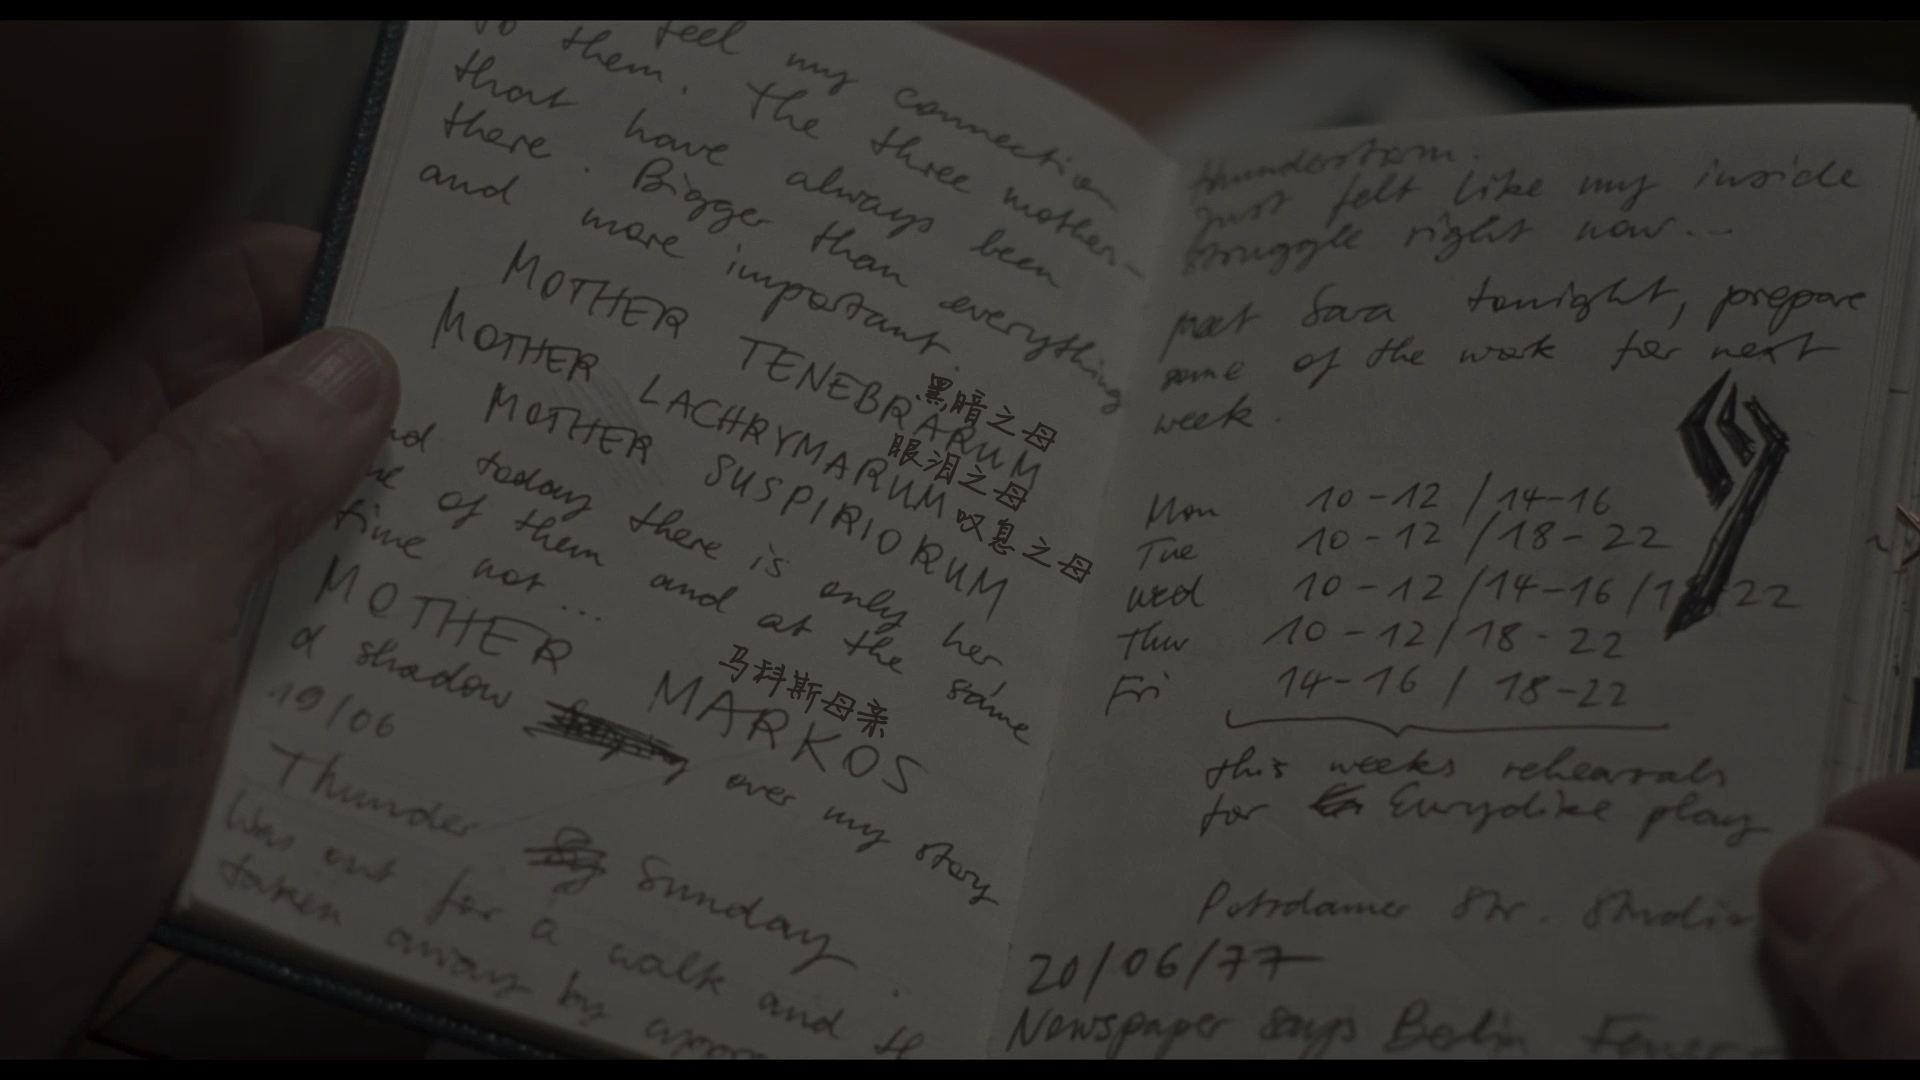 to feel my connection
to them. The three mothers
that have always been
there. Bigger than everything
and more important.
MOTHER TENEBRARUM
黑暗之母
MOTHER LACHRYMARUM
眼泪之母
MOTHER SUSPIRIORUM
叹息之母
and today there is only her
one of them and at the same
time not..
MOTHER MARKOS
马科斯母亲
a shadow over my story
19/06
Thunder Sunday.
Was out for a walk and th
taken away by
thunderstorm.
Just felt like my inside
struggle right now...
meet Sara tonight, prepare
some of the work for next
week.
Mon 10-12 / 14-16
Tue 10-12 / 18-22
Wed 10-12 / 14-16 / 1 -22
Thur 10-12 / 18-22
Fri 14-16 / 18-22
this weeks rehearsals
for Eurydike play
Potsdamer Str. Studio
20/06/77
Newspaper says Berlin Feuer-